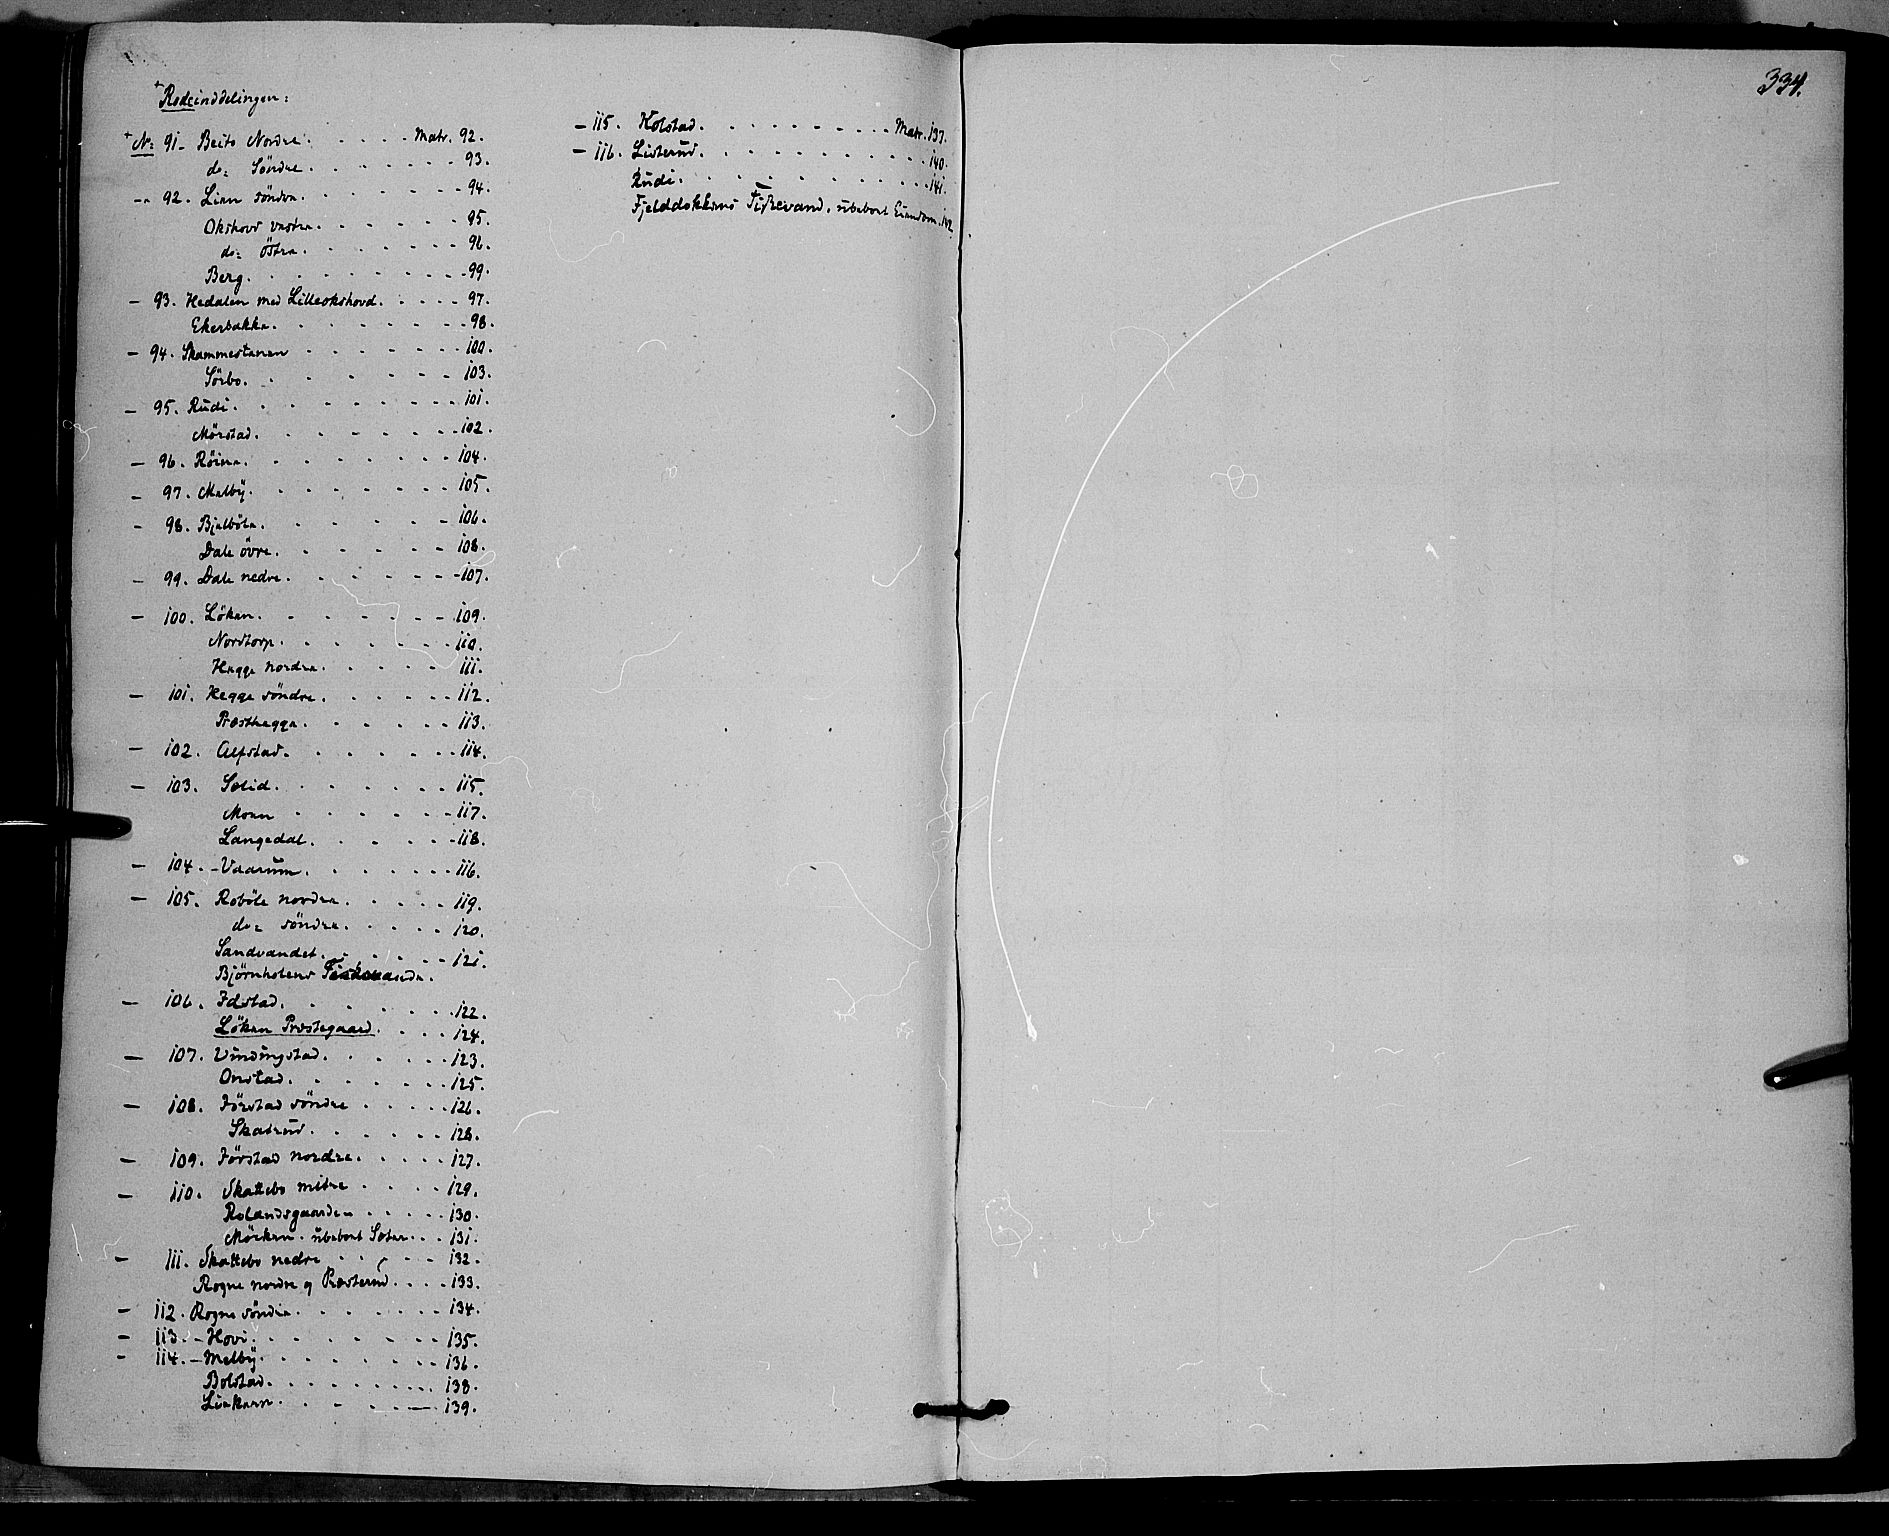 334.
Rodeinddelingen:
No: 91 - Beito Nordre. . . . . Matr. 92.
do: Söndre. . . . . . 93.
-" 92. Lien söndre. . . . . . 94.
Okshovd vestre. . . . . . 95.
do: Östre. . . . . . 96.
Berg. . . . . . . 99.
- 93. Hedalen med Lilleokshovd. . . . . 97.
Ekerbakke. . . . . . . 98.
- 94. Skammestenen . . . . . . 100.
Sörbo. . . . . . . 103.
- 95. Rudi. . . . . . . 101.
Mörstad. . . . . . . 102.
- 96. Röine. . . . . . . 104.
- 97. Melby. . . . . . . 105.
- 98. Bjelböle. . . . . . . 106.
Dale övre. . . . . . . 108.
- 99. Dale nedre. . . . . . . 107.
- 100. Löken. . . . . . . 109.
Nordtorp. . . . . . . 110.
Hegge nordre. . . . . . 111.
- 101. Hegge söndre. . . . . . 112.
Præsthegge. . . . . . 113.
- 102. Alfstad. . . . . . . 114.
- 103. Solid. . . . . . . 115.
Moen . . . . . . 117.
Langedal. . . . . . 118.
- 104. - Vaarum. . . . . . 116.
- 105. Roböle nordre. . . . . 119.
do: söndre. . . . . 120.
Sandvandet. . . . . . 121.
Bjørnholens Fiskevande.
- 106. Idstad. . . . . . . 122.
Löken Præstegaard. . . . 124.
- 107. Vindingstad. . . . . . 123.
Onstad. . . . . . . 125.
- 108. Jörstad söndre . . . . . 126.
Skatrud. . . . . . 128.
- 109. Jörstad nordre. . . . . 127.
- 110. Skattebo mitre . . . . 129.
Rolandsgaarden . . . . . 130.
Möeken. ubeboet Sæter. . . 131.
- 111. Skattebo nedre . . . . . 132.
Rogne nordre og Præsterud. . . . 133.
- 112. Rogne söndre. . . . . . 134.
- 113. - Hovi. . . . . . . 135.
- 114. - Melby. . . . . . . 136.
Bolstad. . . . . . . 138.
Liekarn . . . . . . 139.
- 115. Kolstad. . . . . . . . . Matr. 137.
- 116. Listerud. . . . . . . . . 140.
Rudi. . . . . . . . . 141.
Fjelddokkens Fiskevand, ubeboet Eiendom. 142.